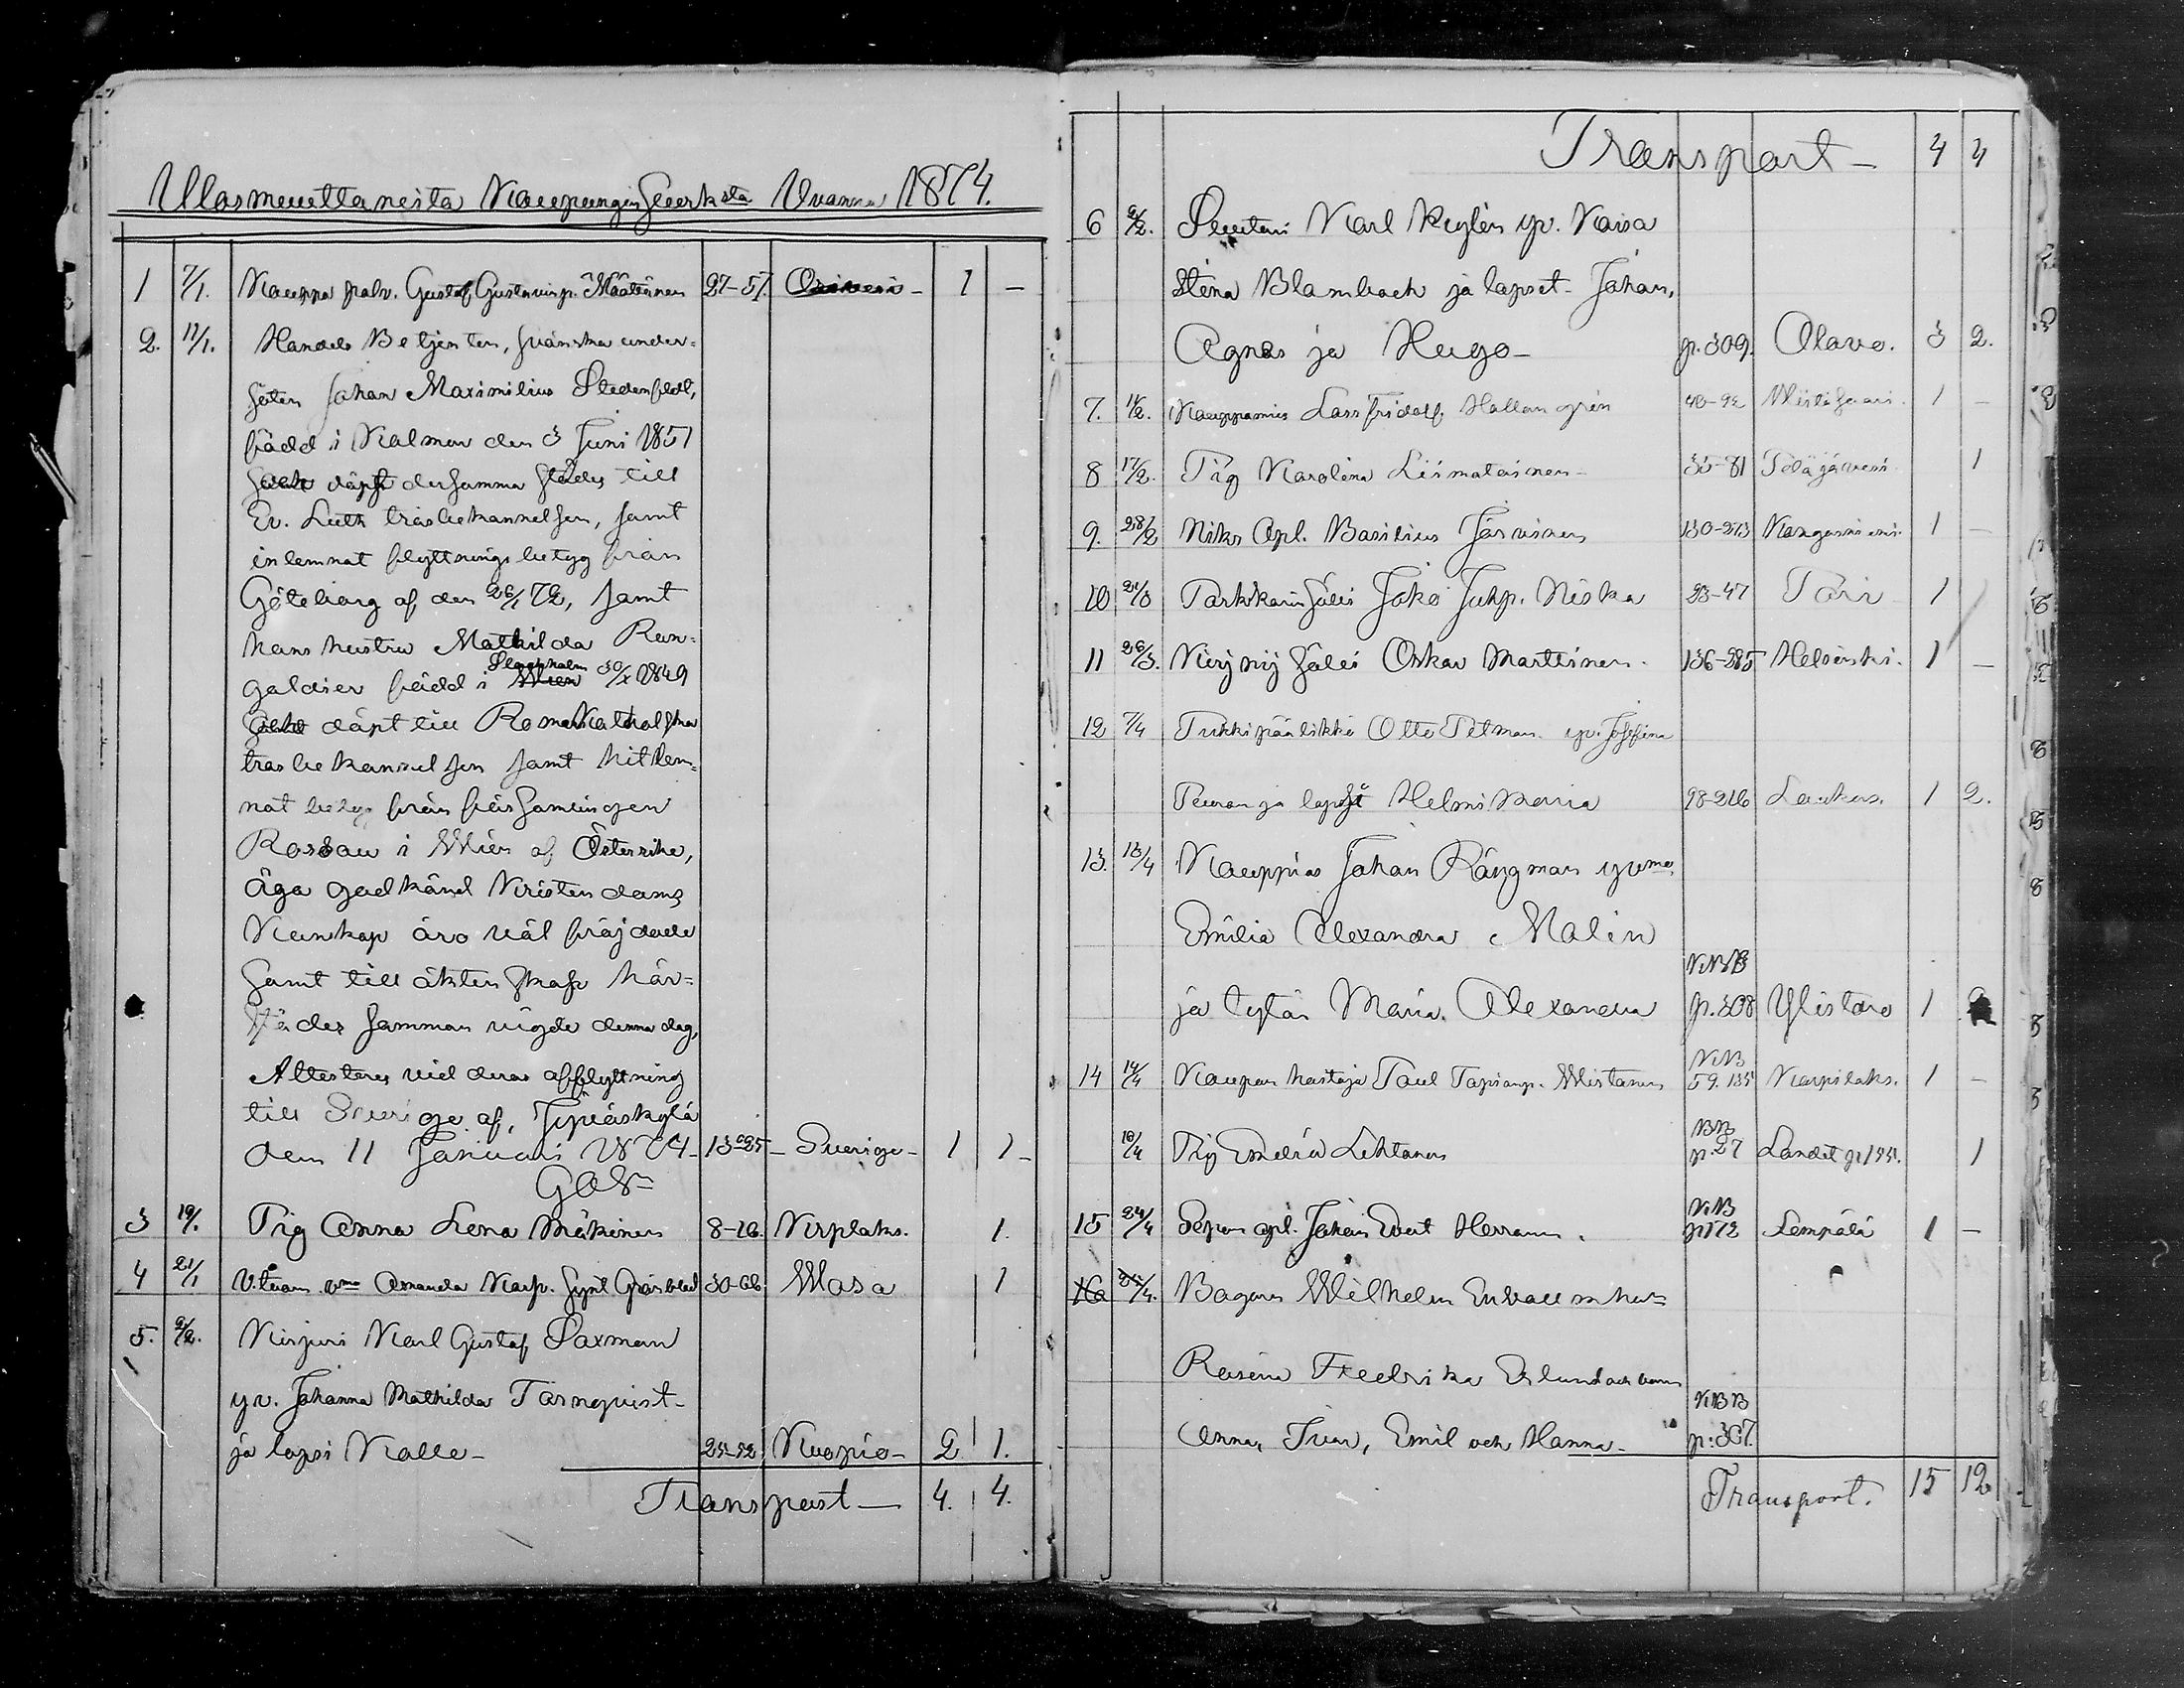 Ulosmuuttaneita Kaupungin Seurksta Vuanna 1874.
1 7/1. Kauppa palv. Gustaf Gustavinp. Määttänen 27-57. 1 -
2. 11/1. Handels Betjenten, svänska under-
såten Johan Maximilius Stedenfeldt,
född i Kalmar den 3 Juni 1851
döpt dersamma städes till
Ev. Luth trosbekännelsen, samt
inlemnat flyttnings betyg från
Göteborg af den 26/1 72, samt
hans hustru Mathilda Run-
galdier född i Stockholm 30/X 1849
döpt till Romersk Katholska
trosbekännelsen samt hitlem-
nat betyg från församlingen
Rossau i Wien af Österrike,
äga godkänd Kristendoms
Kunskap äro väl fräjdade
samt till äktenskap här-
städes samman vigde denna dag,
Attesteras vid deras afflyttning
till Sverige af, Jyväskylä
den 11 Januari 1874- 13-25- Sverige- 1 1-
3 19/1. Pig Anna Lena Mäkinen 8-16. Krplaks. 1.
4 21/1 Amanda Karp. 30-66 Wasa 1
5. 2/2. Nirjuri Karl Gustaf Saxman
yv. Johanna Mathilda Törnqvist-
ja lapsi Kalle- 25-52. Kuopio- 2 1.
Transport- 4. 4.
Transport- 4 4
6 9/2. Karl Nylén yv. Kaisa
Stina Blambach ja lapset Johan,
Agnes ja Hugo- p.309. Alavo. 3 2.
7. 11/2. Kauppamies Lars Fridolf Hallongrén 40-92 1 -
8 17/2. Pig Karolina Liimatainen- 35-81 Päläjävesi 1
9. 28/2 Niks Opl. Basilius Järvinen 130-273 Kangasniemi 1 -
10 21/3 Parkkarin sälli Juhp. Niska 23-47 Pori 1 /
11 26/3. sälli Oskar Marttinen. 136-285 Helsinki. 1 -
12 7/4 Tukkipäälikkö Otto Petman yv. Josefina
ja lapset Helmi Maria 98-216 Laukas. 1 2.
13. 13/4 Kauppias Johan Rångman yvma
Emilia Alexandra Malin
ja tytär Maria Alexandra KBB p.308 Ylistaro 1
14 14/4 Kaupan hoitaja Paul Tapianp. KB 59.135 Karpilaks. 1 -
10/4 Pig Lehtonen BB p.27 Landet 1
15 24/4 Sepän opl. Johan Evert Herranen. KB p.172 Lempälä 1 -
16 24/4. Bagaren Wilhelm
Rosina Fredrika och barn
Anna, Ivar, Emil och Hanna- KBB p.307.
Transport. 15 12